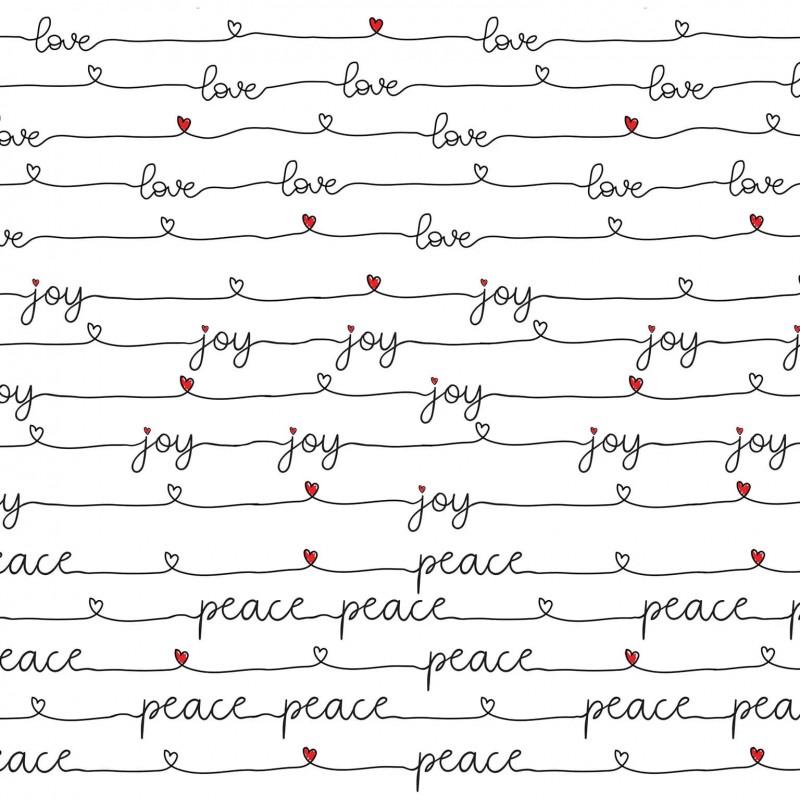 love love
love love love l
ove love
love love love love
ve love
joy joy
joy joy joy j
oy joy
joy joy joy joy
y joy
eace peace
peace peace peace p
eace peace
peace peace peace pea
eace peace